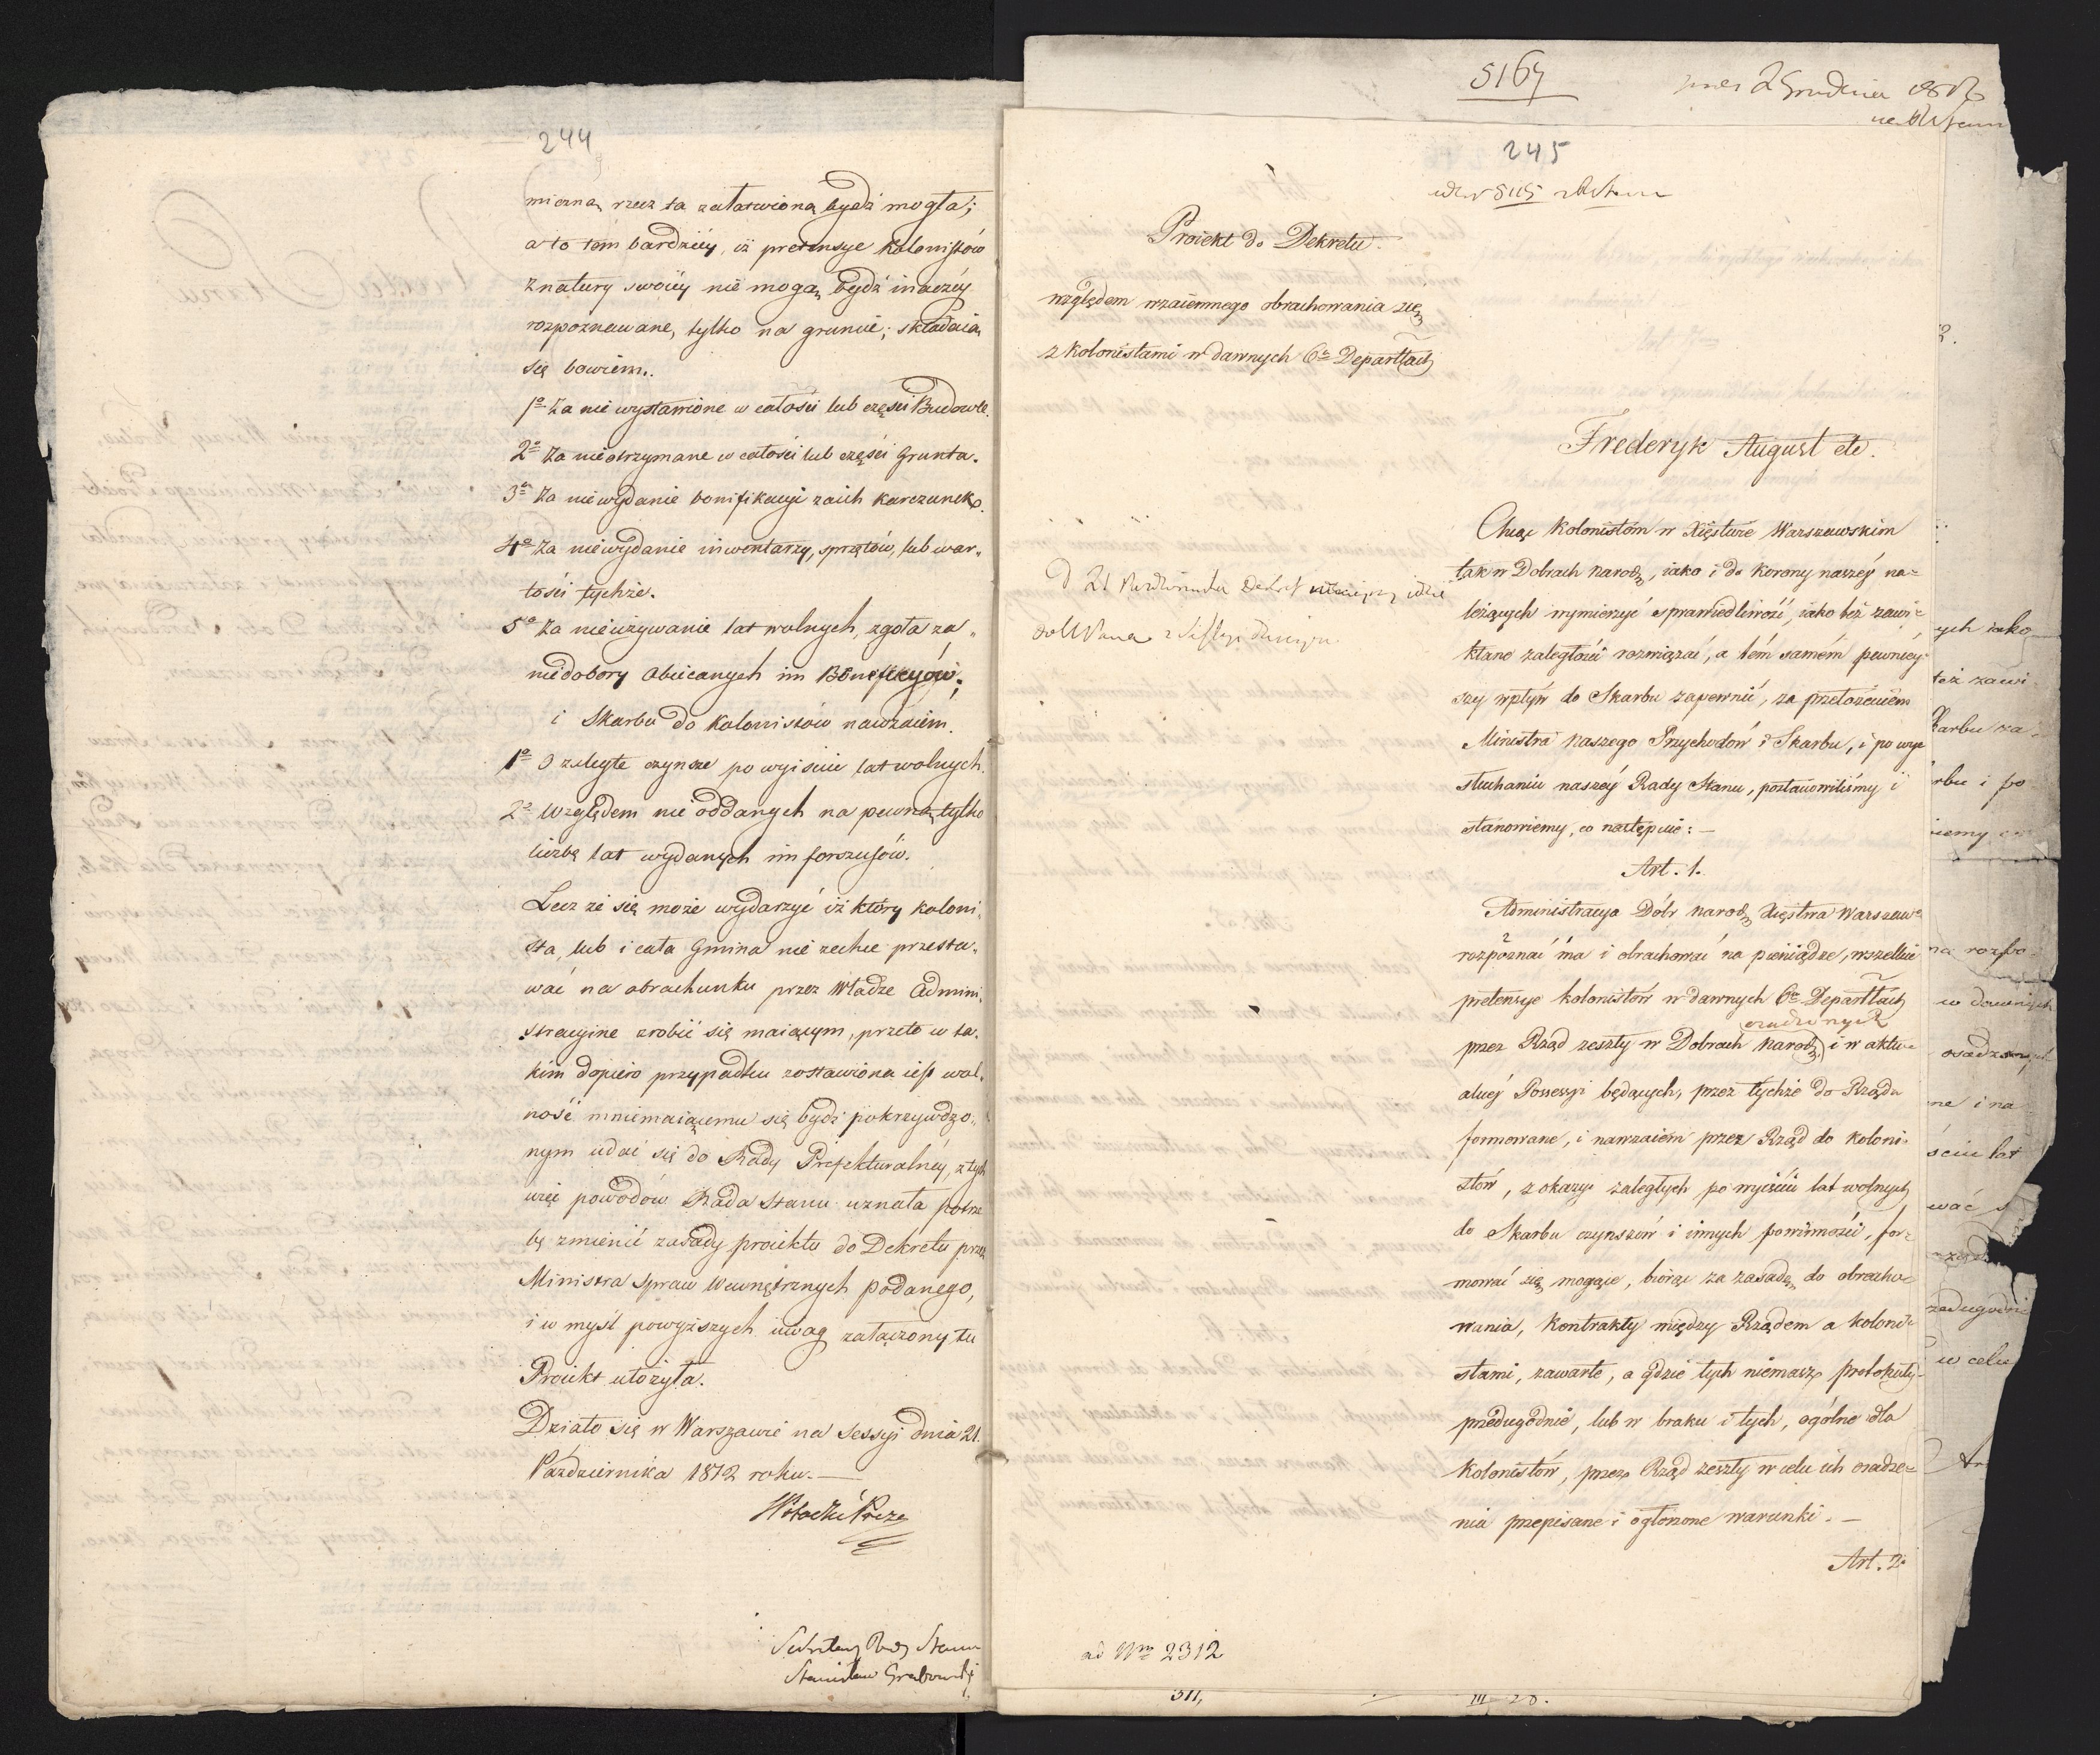 244
miczną rzecz ta załatwioną bydź mogła;
a to tem bardziéy, iż pretensye kolonistów
z natury swoiéy nie mogą bydź inaczéy
rozpoznawane, tylko na gruncie; składaią
się bowiem.
1º Za nie wystawione w całości lub części Budowle.
2º Za nieotrzymane w całości lub części Grunta.
3º Za niewydanie bonifikacyi za ich karczunek.
4º Za niewydanie inwentarzy, sprzętów, lub war„
tości tychże.
5º Za nieużywanie lat wolnych, zgoła za„
niedobory obiecanych im Benefycyów;
i Skarbu do kolonistów nawzaiem.
1º O zaległe czynsze po wyisciu lat wolnych.
2º Względem nie oddanych na pewną tylko
liczbę lat wydanych im forszusów.
Lecz że się może wydarzyć iż który koloni„
sta, lub i cała Gmina nie zechce przesta„
wać na obrachunku przez Władze Admini„
stracyine zrobić się maiącym, przeto w ta„
kim dopiero przypadku zostawiona iest wol„
ność mniemaiącemu się bydź pokrzywdzo„
nym udać się do Rady Prefekturalnéy, z tych
więc powodów Rada Stanu uznała potrze
bę zmienić zasady proiektu do Dekretu przez
Ministra Spraw Wewnętrznych podanego,
i w myśl powyższych uwag załączony tu
Proiekt ułożyła.
Działo się w Warszawie na Sessyi dnia 21.
Października 1812 roku. —
Sekretarz Rady Stanu
Stanisław Grabowski
5164
2 Grudnia
245
Proiekt do Dekretu.
względem wzaiemnego obrachowania się
z kolonistami w dawnych 6ciu Departtach
Frederyk August etc.
Chcąc Kolonistom w Xięstwie Warszawskim
tak w Dobrach Narod, iako i do Korony naszéy na=
leżących wymierzyć sprawiedliwość, iako też zawi=
kłane zaległości rozwiązać, a tém samém pewniéy=
szy wpływ do Skarbu zapewnić, za przełożeniem
Ministra Naszego Przychodów i Skarbu, i po wy=
słuchaniu naszéy Rady Stanu, postanowiliśmy i
stanowiemy, co następuie: —
Art. 1.
Administracya Dóbr Narod, Xięstwa Warszaw=
rozpoznać ma i obrachować na pieniądze, wszelkie
pretensye kolonistów w dawnych 6ciu Departtach
osadzonych
przez Rząd zeszły w Dobrach Narod, i w aktu=
alnéy Possessyi będących, przez tychże do Rządu
formowane, i nawzaiem przez Rząd do koloni=
stów, z okazyi zaległych po wyiściu lat wolnych
do Skarbu czynszów i innych powinności, for=
mować się mogące, biorąc za zasadę, do obracho=
wania, kontrakty między Rządem a koloni=
stami, zawarte, a gdzie tych niemasz, protokuły
przedugodnie, lub w braku i tych, ogólne dla
kolonistów, przez Rząd zeszły w celu ich osadze=
nia przepisane i ogłoszone warunki. —
Art. 2.
ad Nrm 2312
311,
III 28.
ych iako
też zawi
karbu za
rbu i po
na rozpo
w dawnych
osadzonych
ne i na
ściu lat
wać s
zedugodn
w celu